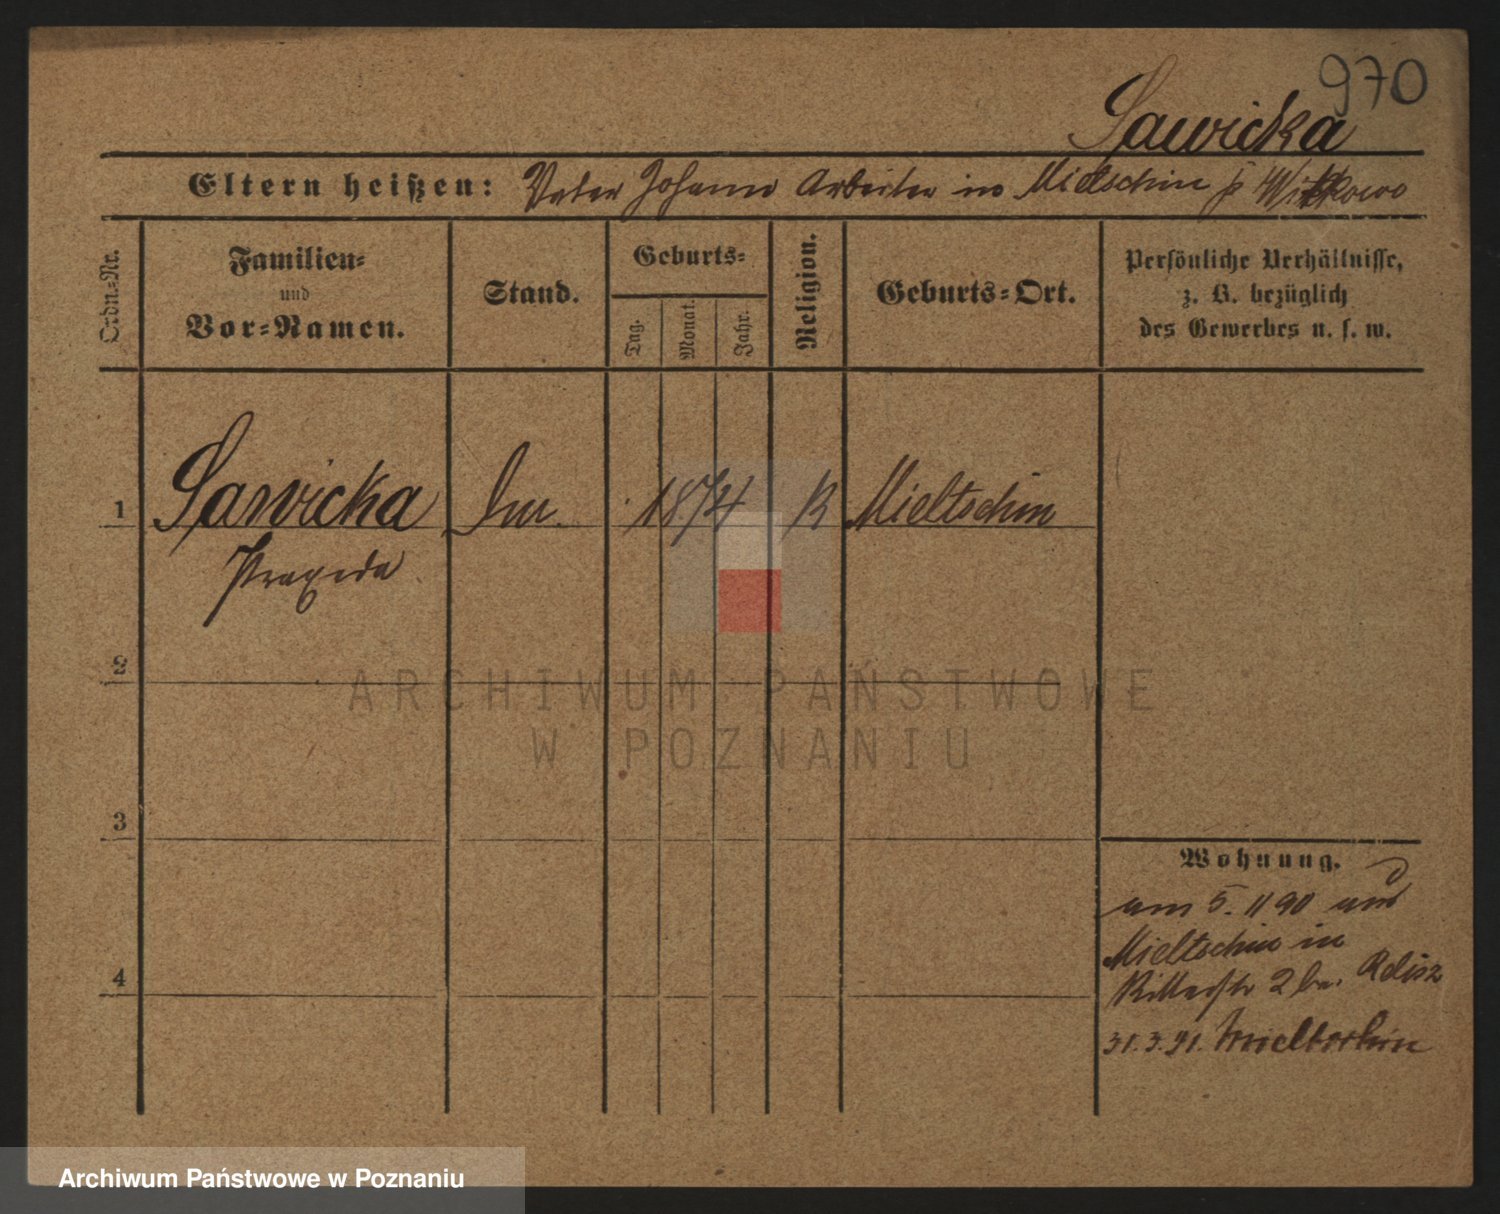 970
Sawicka
Eltern heißen: Vater Johann Arbeiter in Mieltschin p Witkowo
Ordn.-Nr.
Familien-
und
Vor-Namen.
Stand.
Geburts-
Tag.
Monat.
Jahr.
Religion.
Geburts-Ort.
Persönliche Verhältnisse,
z. B. bezüglich
des Gewerbes u. s. w.
1 Sawicka 1874 K Mieltschin
Praxeda
2
3
4
Wohnung.
am 5. 11 90 aus
Mieltschin in
Ritterstr 2 bei
31.3.91. Mieltschin
ARCHIWUM PAŃSTWOWE
W POZNANIU
Archiwum Państwowe w Poznaniu